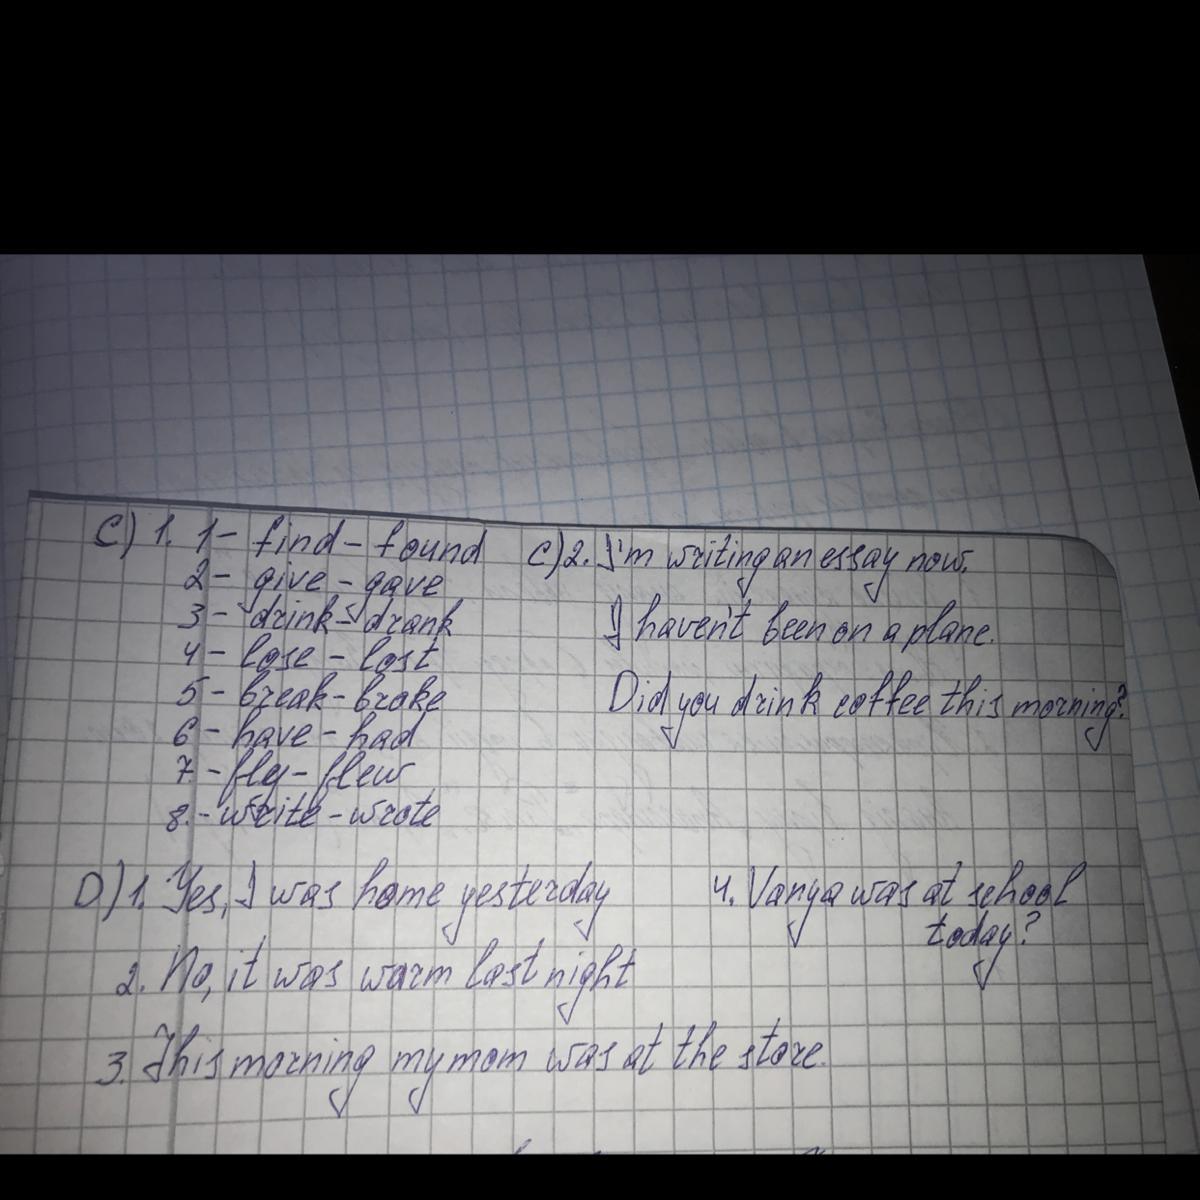 C) 1. 1- find - found
2- give - gave
3- drink - drank
4- lose - lost
5- break - broke
6- have - had
7.- fly - flew
8.- write - wrote
C) 2. I'm writing an essay now.
I haven't been on a plane.
Did you drink coffee this morning?
D) 1. Yes, I was home yesterday
2. No, it was warm last night
3. This morning my mom was at the store.
4. Vanya was at school
today?